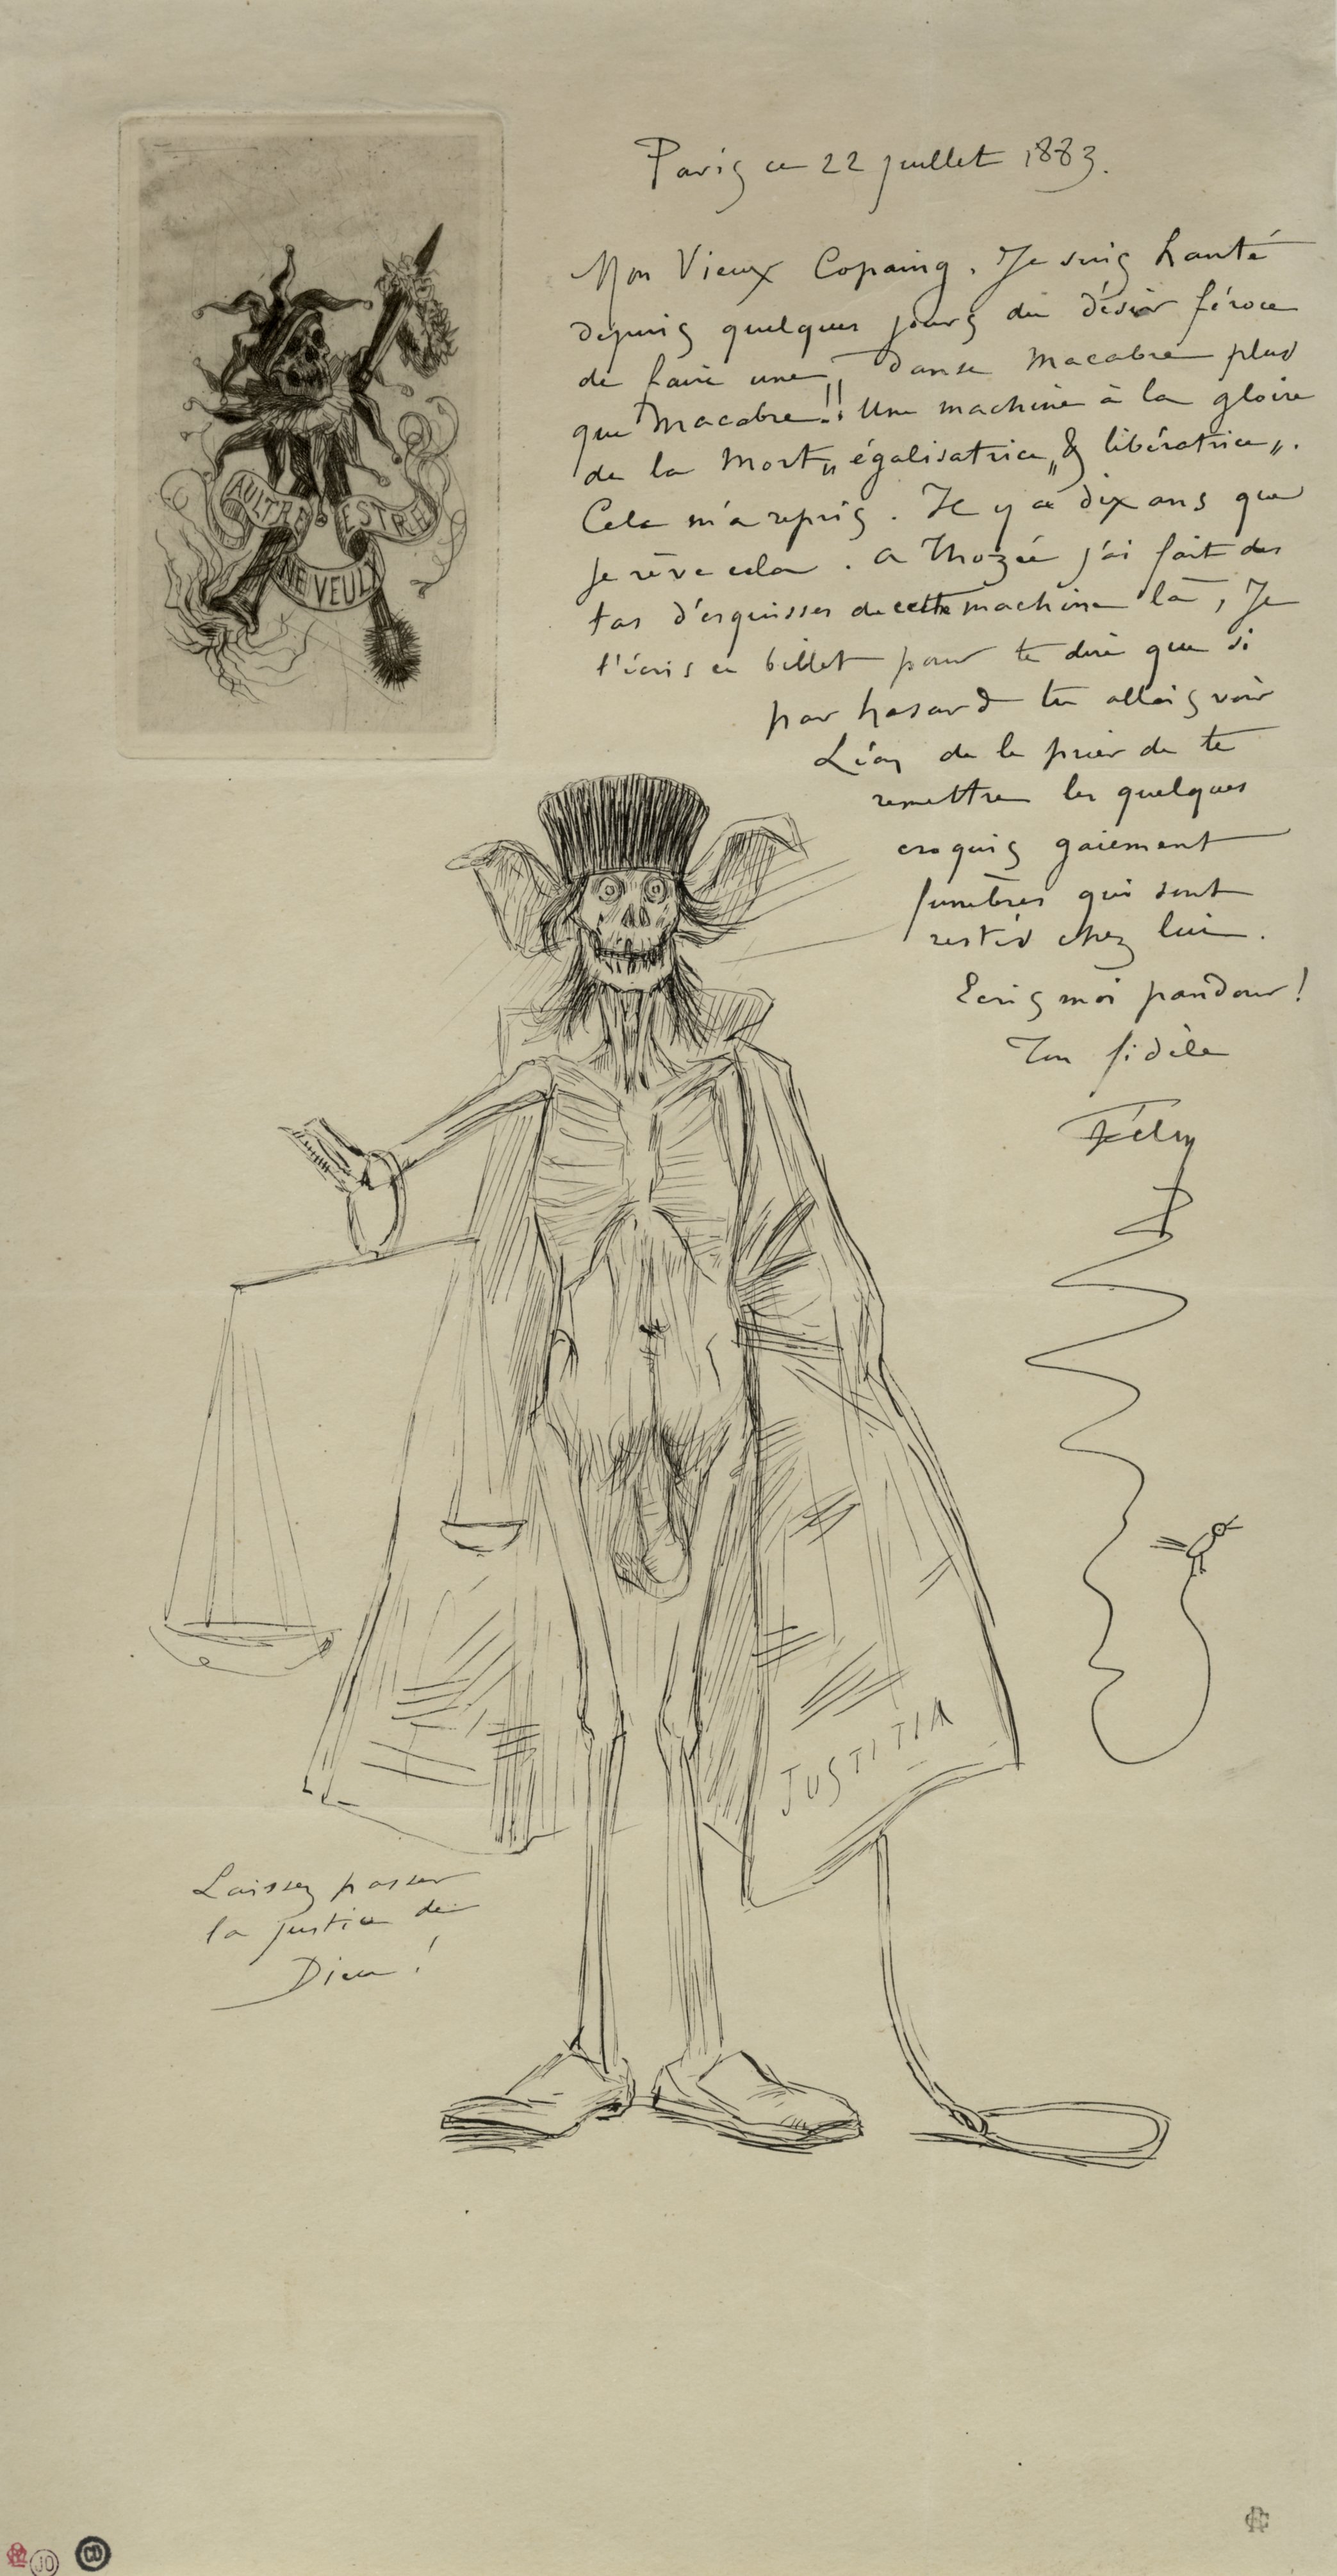 AULTRE
ESTRE
NE VEULX
Paris ce 22 juillet 1883.
Mon Vieux Copaing. Je suis hanté
depuis quelques jours du désir féroce
de faire une „ danse macabre plus
que macabre!! Une machine à la gloire
de la Mort „égalisatrice„ & libératrice„.
Cela m'a repris. Il y a dix ans que
je rêve cela. a Thozée j'ai fait des
tas d'esquisses de cette machine là, Je
t'écris ce billet pour te dire que si
par hasard tu allais voir
Léon de le prier de te
remettre les quelques
croquis gaiement
funèbres qui sont
restés chez lui.
Ecris moi pandour!
Ton fidèle
Fély
JUSTITIA
Laissez passer
la justice de
Dieu!
JO
CD